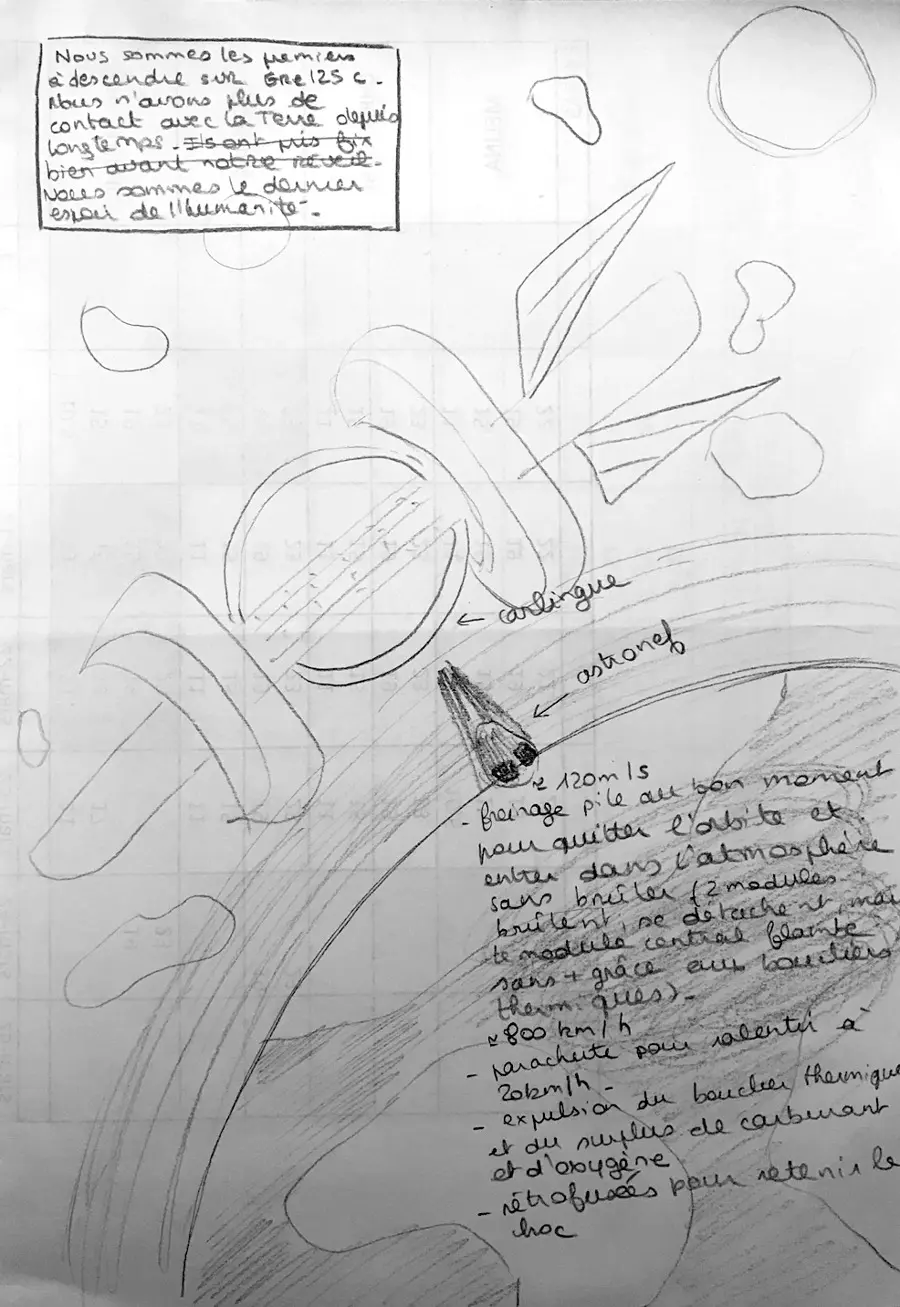 Nous sommes les premiers
à descendre sur GRE125 c.
Nous n'avons plus de
contact avec la Terre depuis
longtemps. Ils ont pris fin
bien avant notre réveil.
Nous sommes le dernier
espoir de l'humanité.
carlingue
astronef
≈ 120m/s
- freinage pile au bon moment
pour quitter l'orbite et
entrer dans l'atmosphère
sans brûler (2 modules
brûlent, se détachent, mais
le module central flambe
sans + grâce aux boucliers
thermiques).
≈ 800 km/h
- parachute pour ralentir à
20km/h.
- expulsion du bouclier thermique
et du surplus de carburant
et d'oxygène
- rétrofusées pour retenir le
choc